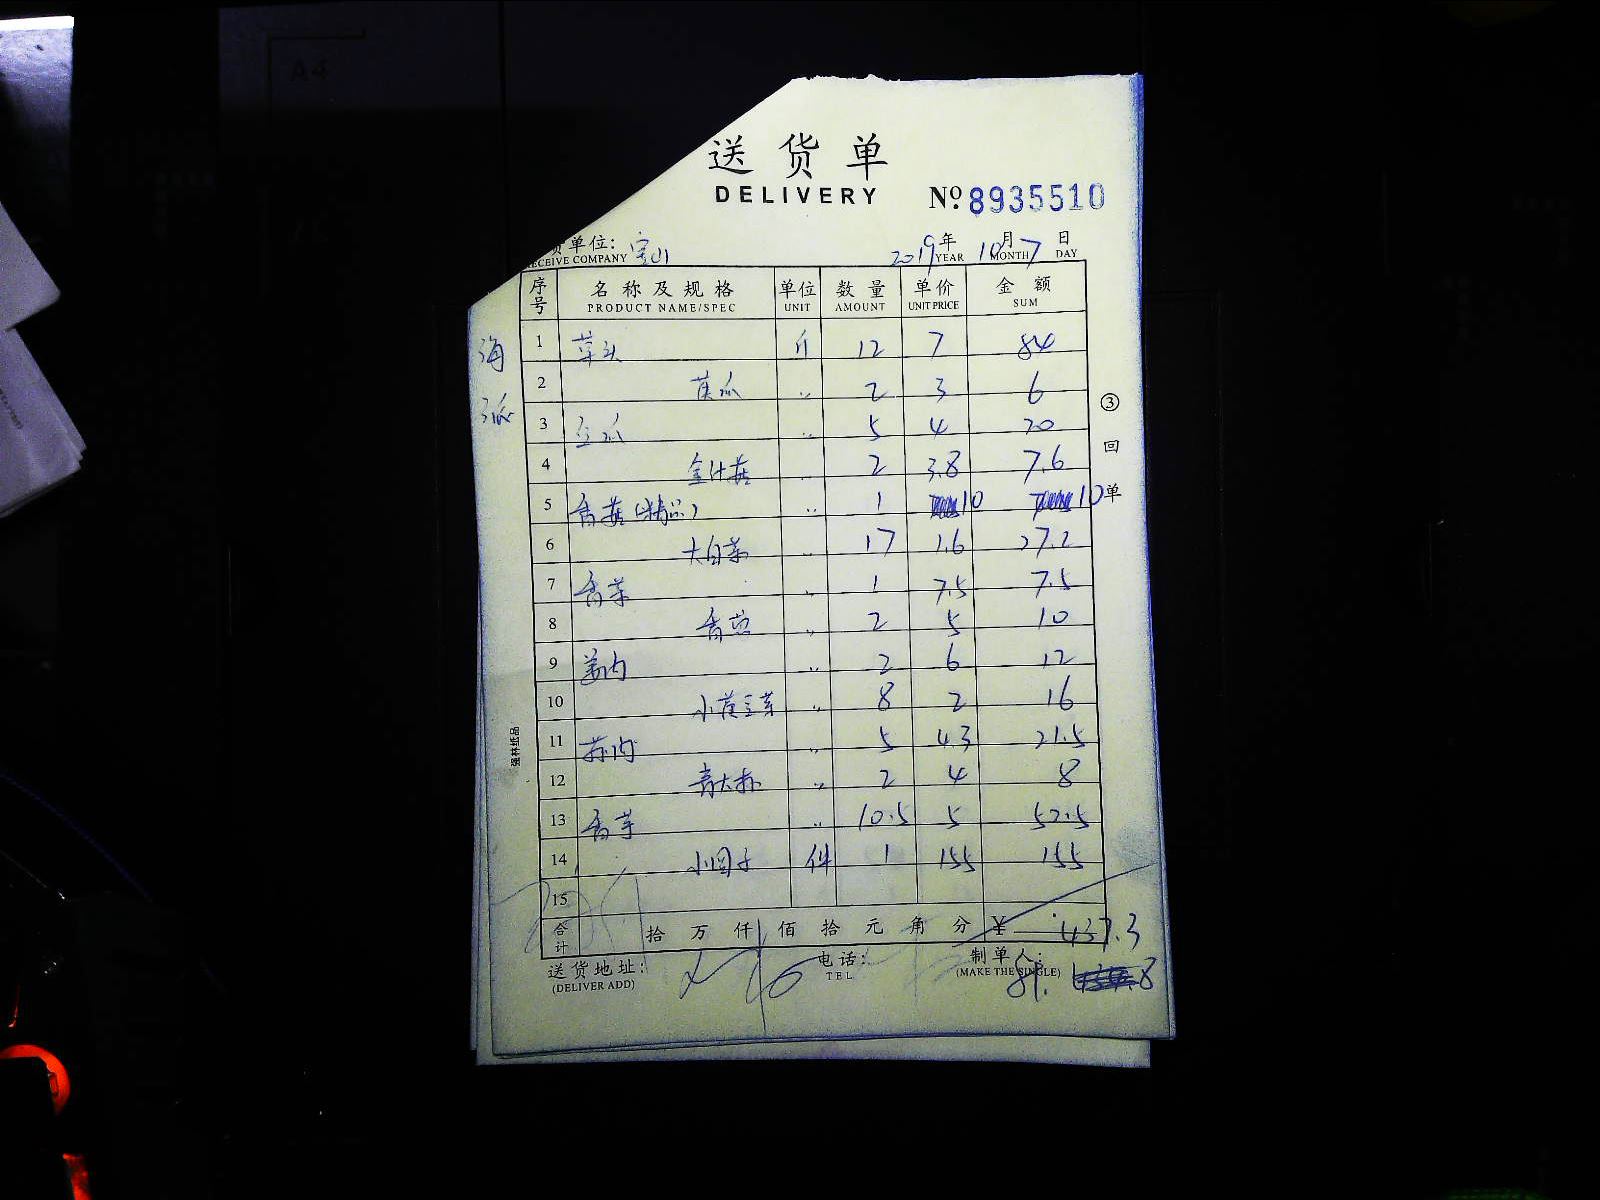 A4
送货单
DELIVERY
№ 8935510
货单位: 宝山 2019年 10月 7日
RECEIVE COMPANY YEAR MONTH DAY
序号 名称及规格 单位 数量 单价 金额
PRODUCT NAME/SPEC UNIT AMOUNT UNIT PRICE SUM
海
1 草头 斤 12 7 84
2 黄瓜 〃 2 3 6
3 瓜 〃 5 4 20
4 金针菇 〃 2 3.8 7.6
5 香菇(精品) 〃 1 10 10
6 大白菜 〃 17 1.6 27.2
7 香菜 〃 1 7.5 7.5
8 香葱 〃 2 5 10
9 姜肉 〃 2 6 12
10 小黄豆芽 〃 8 2 16
11 蒜肉 〃 5 4.3 21.5
12 青大椒 〃 2 4 8
13 香芋 〃 10.5 5 52.5
14 小圆子 件 1 155 155
15
合计 拾万仟佰拾元角分 ¥ 437.3
送货地址: 电话: 制单人:
(DELIVER ADD) TEL (MAKE THE SINGLE)
③回单
强林纸品